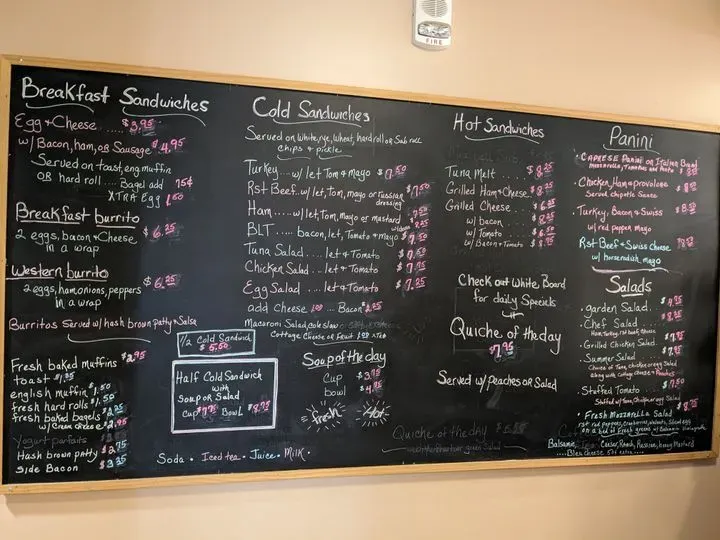 FIRE
Breakfast Sandwiches
Egg + Cheese ..... $3.95
w/ Bacon, ham, or Sausage $4.95
Served on toast, eng. muffin
OR hard roll .... Bagel add 75¢
XTRA Egg 1.50
Breakfast burrito
2 eggs, bacon + Cheese $6.25
in a wrap
Western burrito
2 eggs, ham, onions, peppers $6.25
in a wrap
Burritos Served w/ hash brown patty + Salsa
Fresh baked muffins $2.95
toast
english muffin $1.50
fresh hard rolls $1.50
fresh baked bagels
w/ Cream cheese $2.95
Yogurt parfaits
Hash brown patty $2.75
Side Bacon $3.25
Cold Sandwiches
Served on white, rye, wheat, hard roll or Sub roll
chips & pickle
Turkey .... w/ let Tom & mayo $7.50
Rst Beef .. w/ let, Tom, mayo or russian $7.50
dressing
Ham .... w/ let, Tom, mayo or mustard
BLT .... bacon, let, Tomato + mayo
Tuna Salad .... let + Tomato
Chicken Salad .. let + Tomato
Egg Salad .... let + Tomato $7.25
add Cheese 1.00 ... Bacon
Macaroni Salad, cole slaw
Cottage Cheese or Fruit
1/2 Cold Sandwich
$5.50
Half Cold Sandwich
with
Soup or Salad
Cup $7.75 Bowl $8.75
Soup of the day
Cup $3.75
bowl $4.75
fresh Hot
Soda • Iced tea • Juice • Milk •
Hot Sandwiches
Tuna Melt . $8.25
Grilled Ham & Cheese . $8.25
Grilled Cheese . $6.25
w/ bacon $8.25
w/ Tomato
w/ Bacon + Tomato $8.75
Check out White Board
for daily Specials
Quiche of the day
$7.95
Served w/ Peaches or Salad
Quiche of the day
Panini
• CAPRESE Panini on Italian Bread
Mozzarella, Tomatoes and Pesto
• Chicken, Ham & provolone
Served chipotle Sauce
• Turkey, Bacon & Swiss $8.50
w/ red pepper mayo
Rst Beef & Swiss cheese
w/ horseradish mayo
Salads
• garden Salad
• Chef Salad
Ham, Turkey, rst beef, cheese
• Grilled Chicken Salad
• Summer Salad
Choice of Tuna, Chicken or egg Salad
along with Cottage Cheese & Peaches
• Stuffed Tomato . $7.50
Stuffed w/ Tuna, Chicken or egg Salad
• Fresh Mozzarella Salad $8.75
rst red peppers, cranberries, walnuts, Sliced egg
on a bed of Fresh greens w/ Balsamic Vinaigrette
Balsamic, Caesar, Ranch, Russian, honey Mustard
.... Bleu Cheese 50¢ extra ....